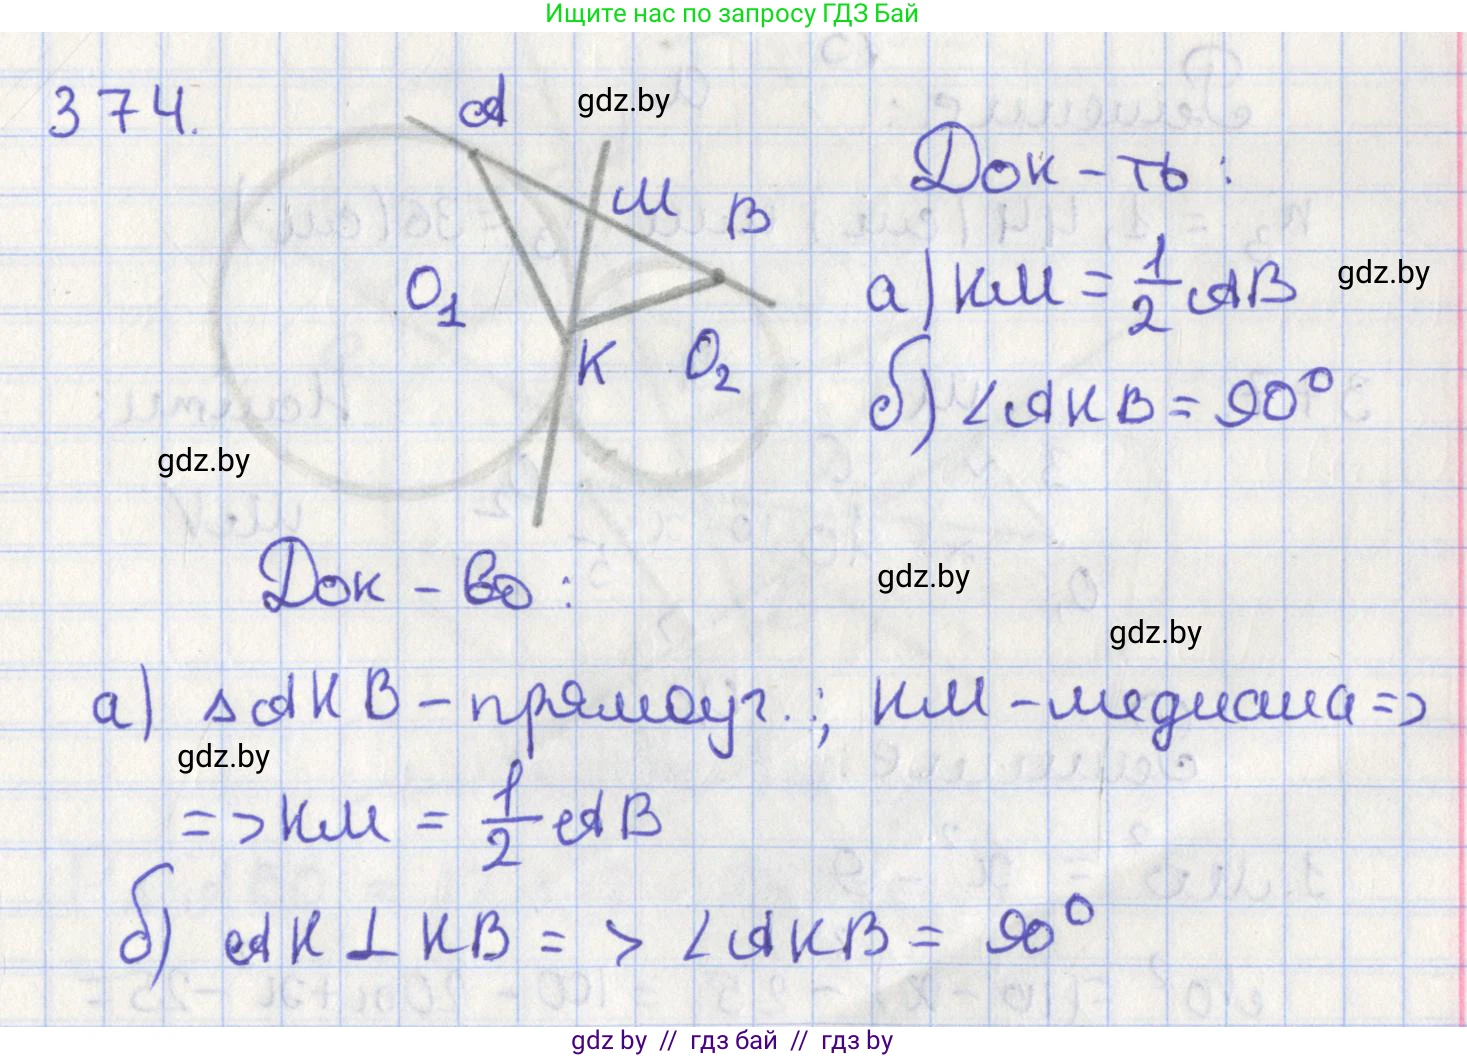 Ищите нас по запросу ГДЗ Бай
374.
A
gdz.by
M
B
O1
K
O2
Док-ть:
а) KM = 1/2 AB
gdz.by
б) ∠AKB = 90°
gdz.by
Док-во:
gdz.by
gdz.by
а) △AKB - прямоуг.; KM - медиана =>
gdz.by
=> KM = 1/2 AB
б) AK ⊥ KB => ∠AKB = 90°
gdz by // гдз бай // гдз by